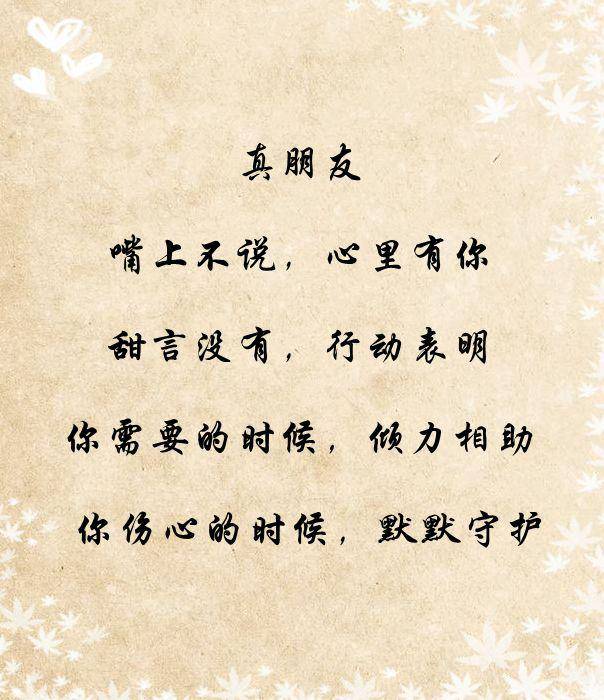 真朋友
嘴上不说，心里有你
甜言没有，行动表明
你需要的时候，倾力相助
你伤心的时候，默默守护